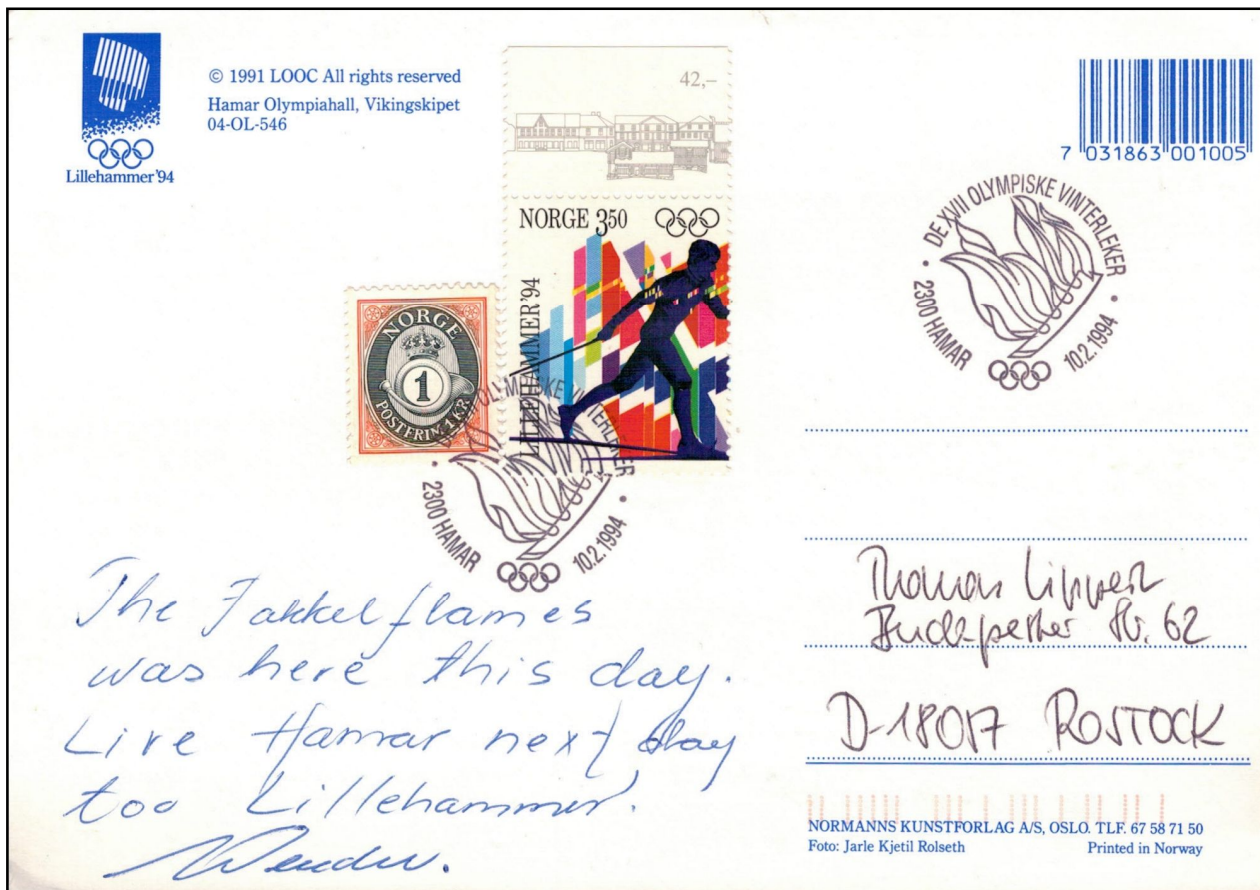 © 1991 LOOC All rights reserved
Hamar Olympiahall, Vikingskipet
04-OL-546
Lillehammer'94
42,–
NORGE 3.50
LILLEHAMMER'94
NORGE
1
POSTFRIM. 1 KR
OLYMPISKE VINTERLEKER
2300 HAMAR
10.2.1994
7 031863 001005
DE XVII OLYMPISKE VINTERLEKER
2300 HAMAR
10.2.1994
The Fakkelflames
was here this day.
Live Hamar next day
too Lillehammer.
Thomas Lippert
Budapester Str. 62
D-18057 ROSTOCK
NORMANNS KUNSTFORLAG A/S, OSLO. TLF. 67 58 71 50
Foto: Jarle Kjetil Rolseth
Printed in Norway